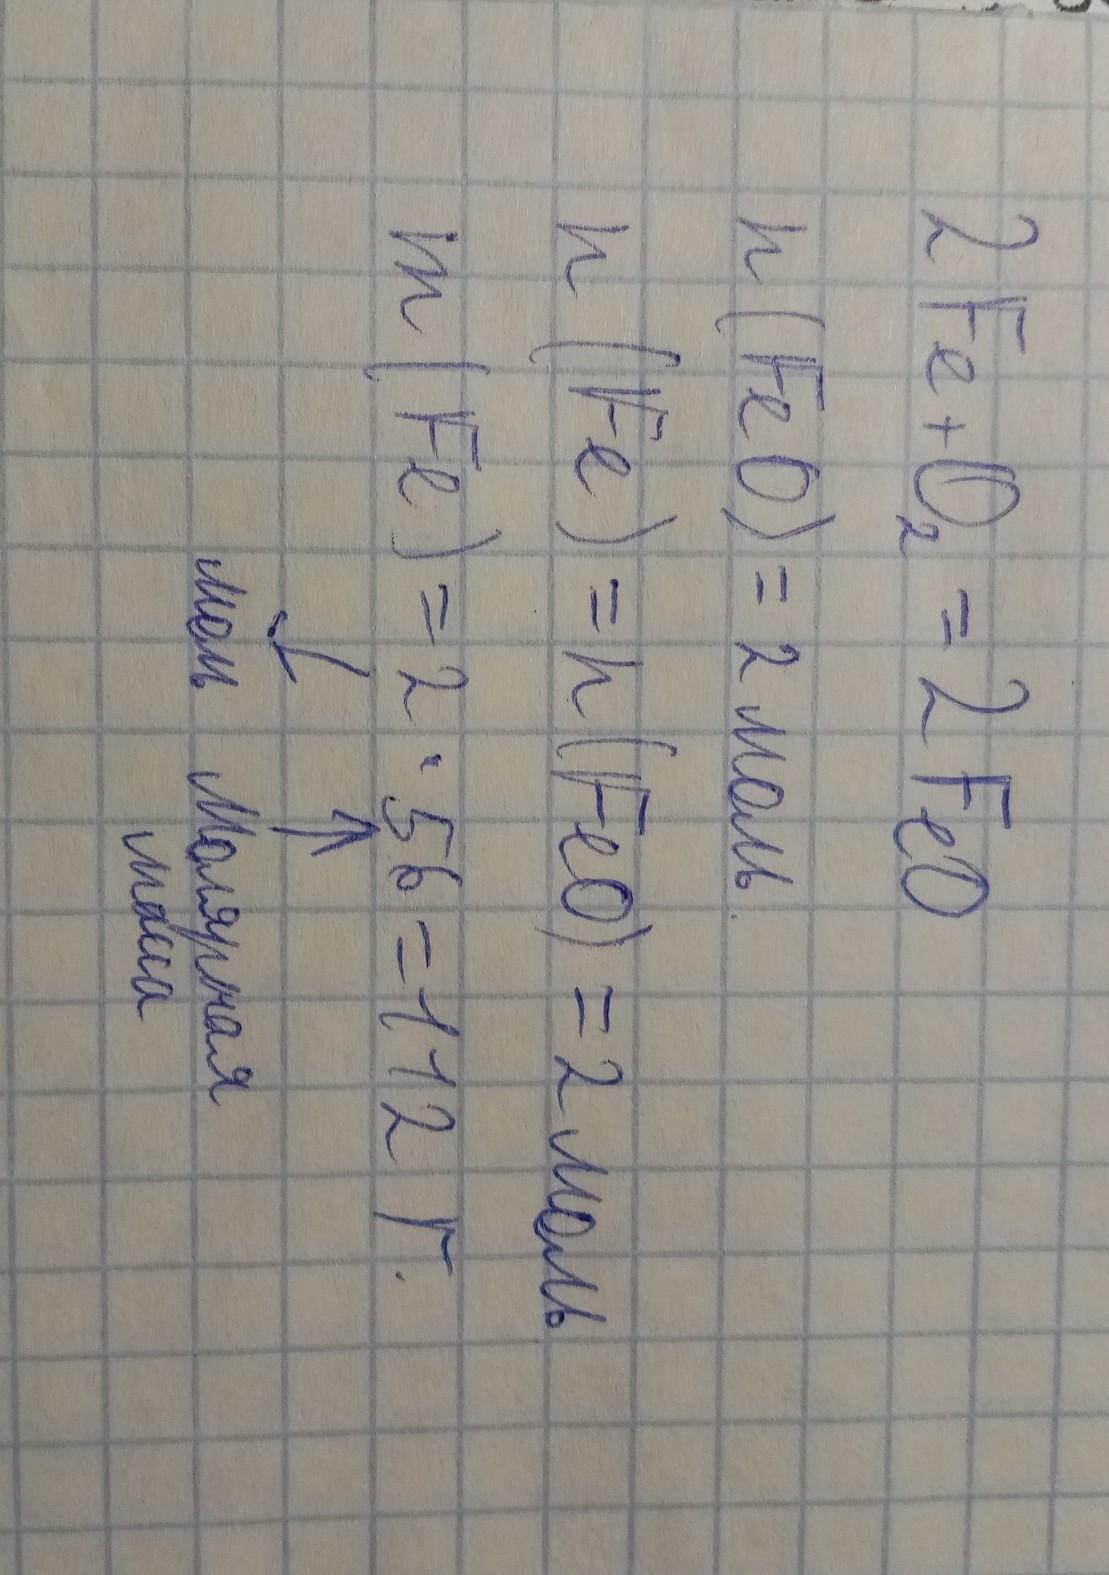 2Fe+O₂ = 2FeO
n(FeO) = 2 моль.
n(Fe) = n(FeO) = 2 моль
m(Fe) = 2 · 56 = 112 г.
моль Молярная
масса